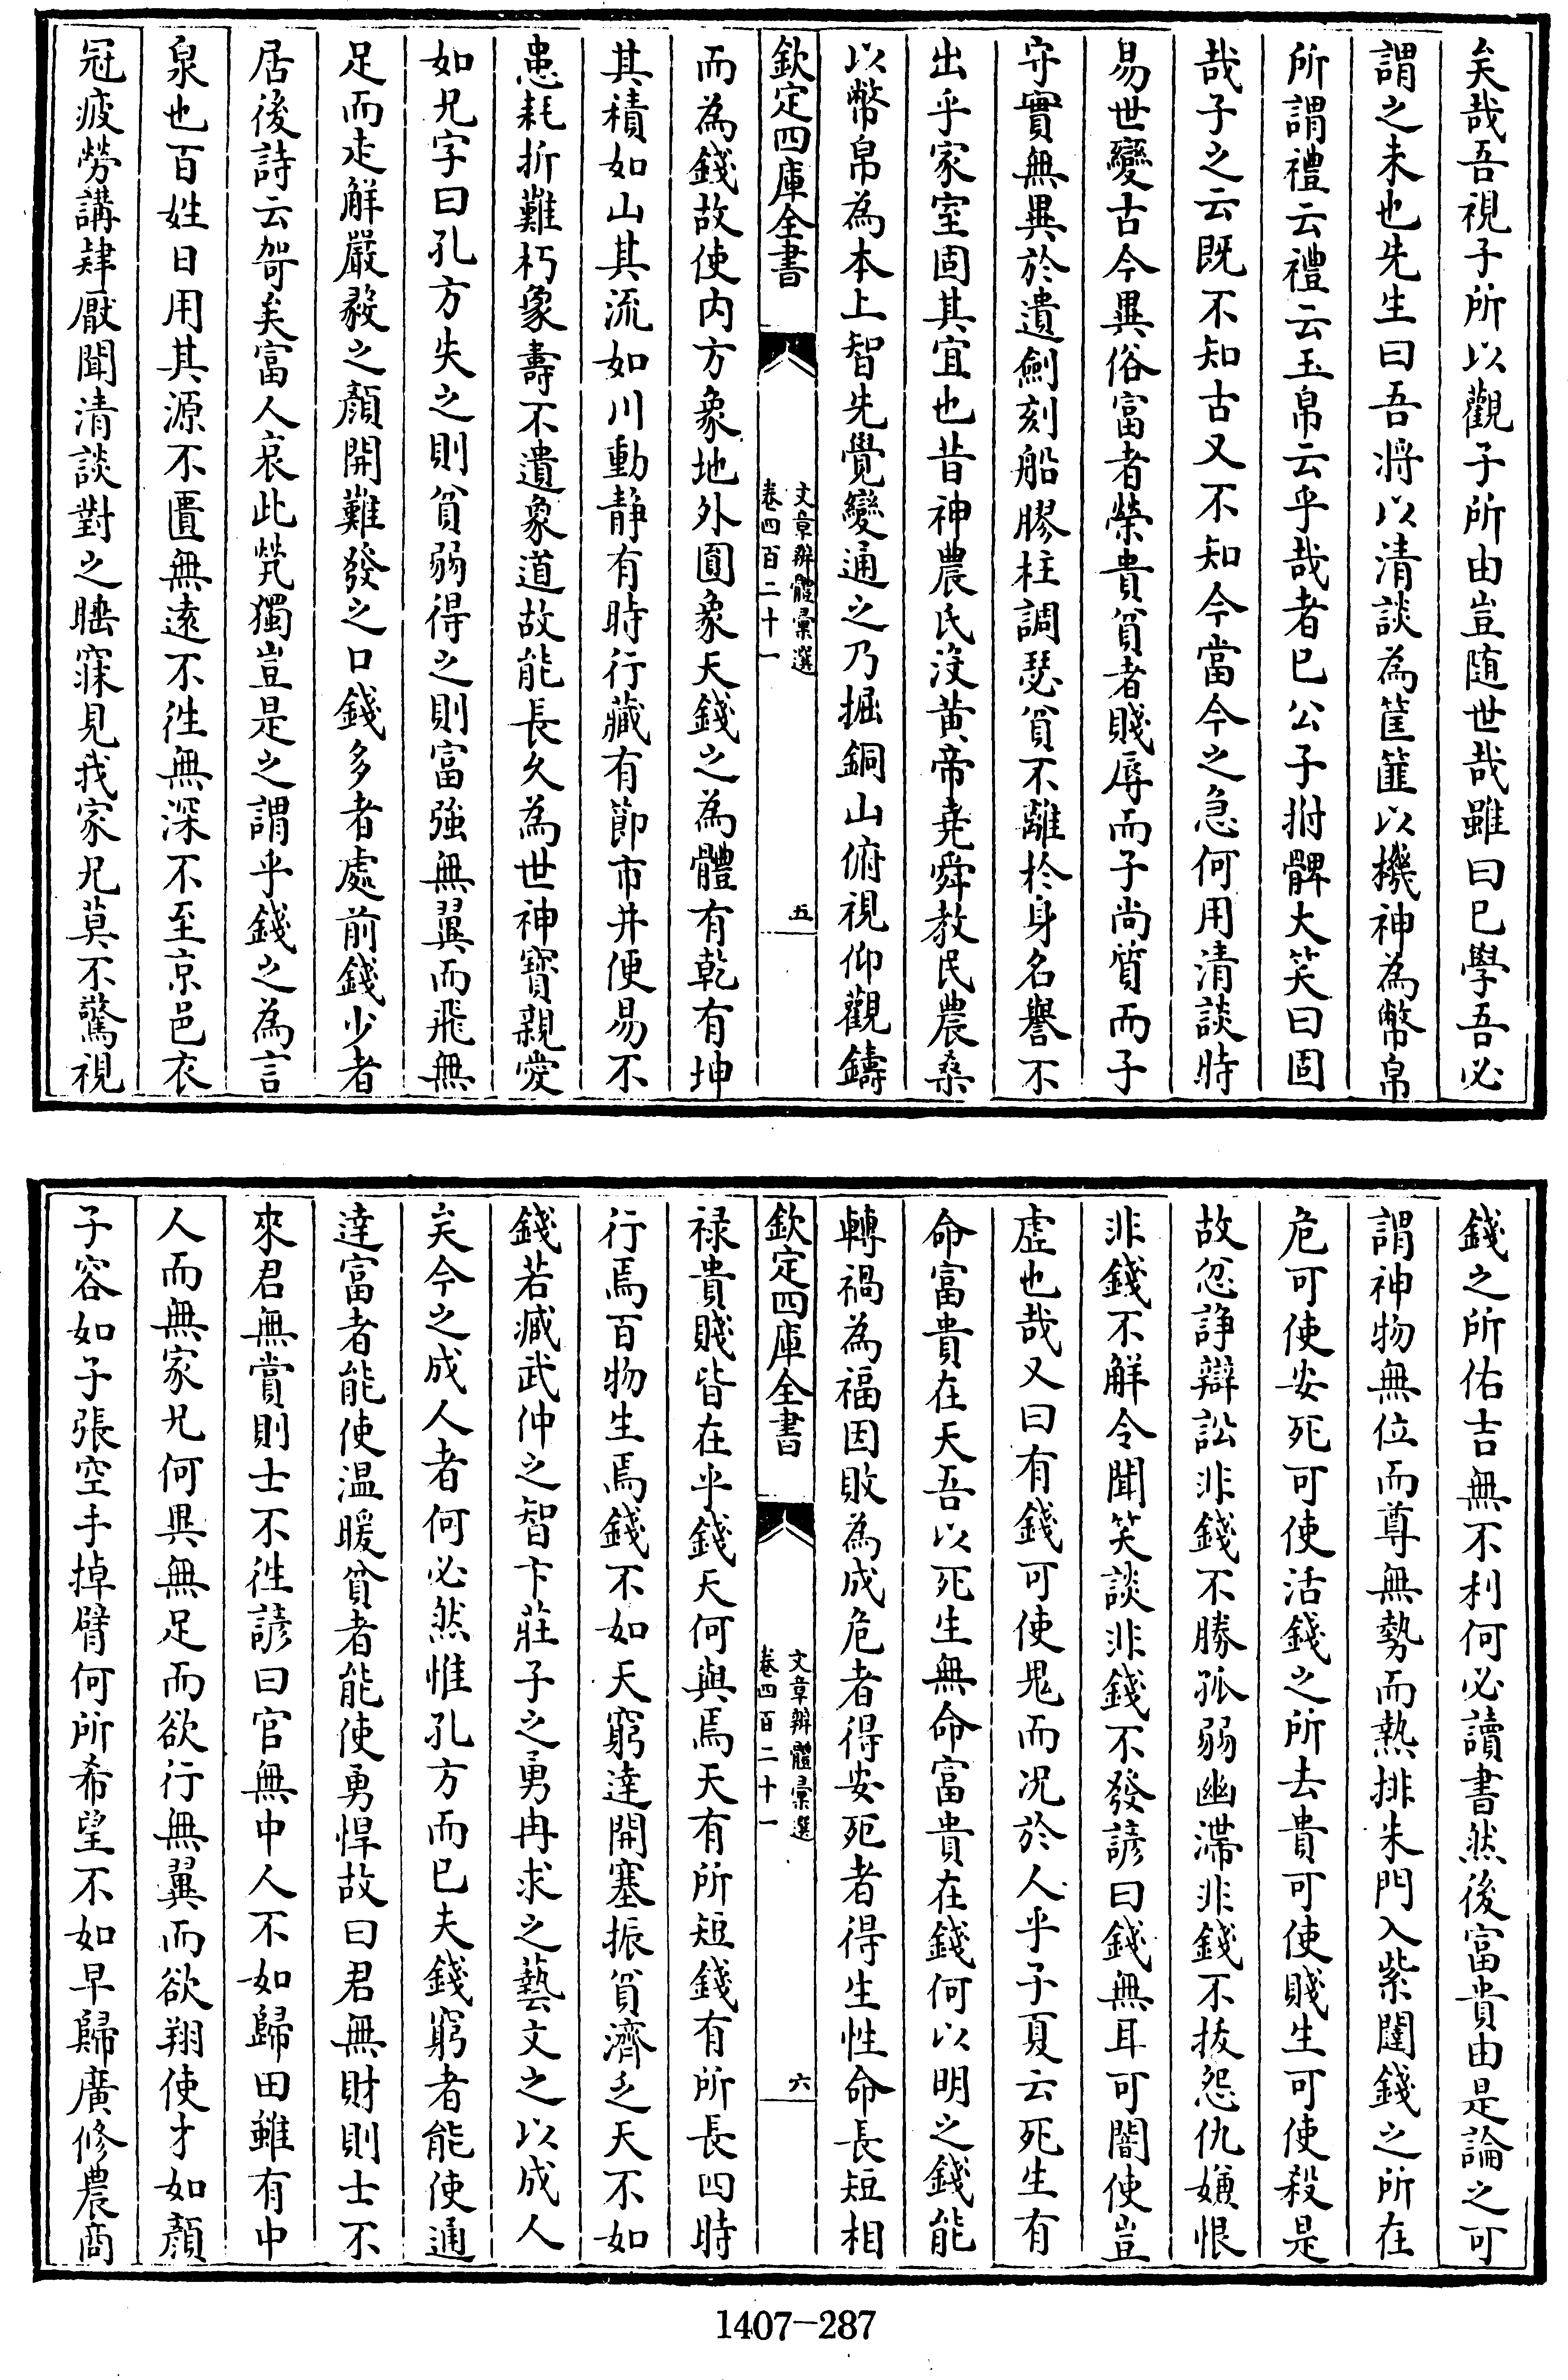 矣哉吾視子所以觀子所由豈随世哉雖曰已學吾必
謂之未也先生曰吾將以清談為筐篚以機神為幣帛
所謂禮云禮云玉帛云乎哉者已公子拊髀大笑曰固
哉子之云既不知古又不知今當今之急何用清談時
易世變古今異俗富者榮貴貧者賤辱而子尚質而子
守實無異於遺劍刻船膠柱調瑟貧不離於身名譽不
出乎家室固其宜也昔神農氏沒黄帝堯舜教民農桑
以幣帛為本上智先覺變通之乃掘銅山俯視仰觀鑄
欽定四庫全書
文章辨體彙選
卷四百二十一
五
而為錢故使内方象地外圓象天錢之為體有乾有坤
其積如山其流如川動静有時行藏有節市井便易不
患耗折難朽象壽不遺象道故能長久為世神寳親愛
如兄字曰孔方失之則貧弱得之則富強無翼而飛無
足而走解嚴毅之顏開難發之口錢多者處前錢少者
居後詩云哿矣富人哀此煢獨豈是之謂乎錢之為言
泉也百姓日用其源不匱無遠不徃無深不至京邑衣
冠疲勞講肄厭聞清談對之睡寐見我家兄莫不驚視
錢之所佑吉無不利何必讀書然後富貴由是論之可
謂神物無位而尊無勢而熱排朱門入紫闥錢之所在
危可使安死可使活錢之所去貴可使賤生可使殺是
故忿諍辯訟非錢不勝孤弱幽滯非錢不拔怨仇嫌恨
非錢不解令聞笑談非錢不發諺曰錢無耳可闇使豈
虚也哉又曰有錢可使鬼而况於人乎子夏云死生有
命富貴在天吾以死生無命富貴在錢何以明之錢能
轉禍為福因敗為成危者得安死者得生性命長短相
欽定四庫全書
文章辨體彙選
卷四百二十一
六
禄貴賤皆在乎錢天何與焉天有所短錢有所長四時
行焉百物生焉錢不如天窮達開塞振貧濟乏天不如
錢若臧武仲之智卞莊子之勇冉求之藝文之以成人
矣今之成人者何必然惟孔方而已夫錢窮者能使通
達富者能使温暖貧者能使勇悍故曰君無財則士不
來君無賞則士不徃諺曰官無中人不如歸田雖有中
人而無家兄何異無足而欲行無翼而欲翔使才如顏
子容如子張空手掉臂何所希望不如早歸廣修農商
1407-287